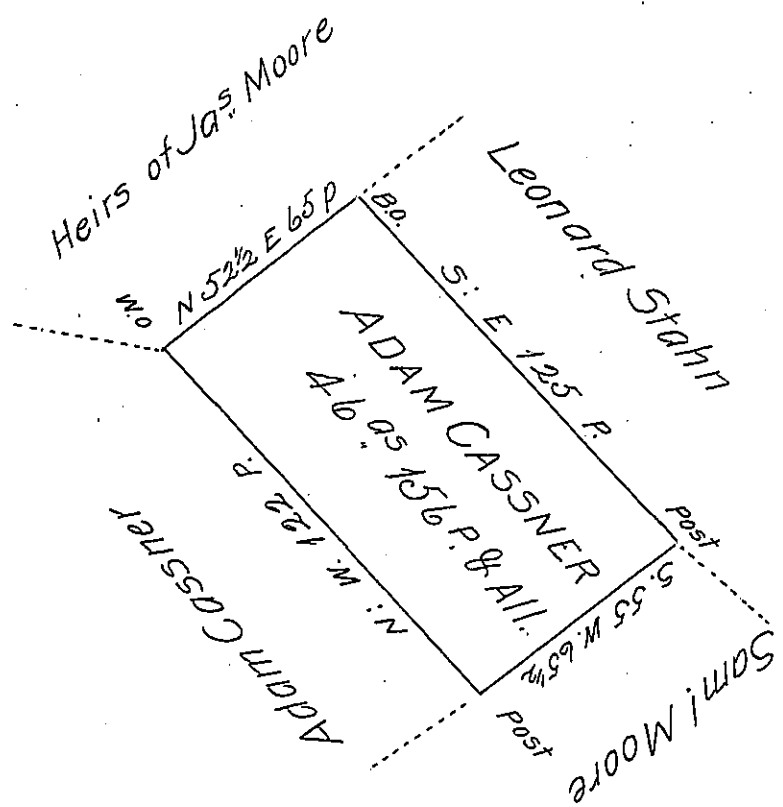 Heirs of Jas. Moore
Leonard Stahn
W.O
N 52½ E 65 P
B.O.
S: E 125 P.
ADAM CASSNER
46 as 156 P. & All:
N: W. 122 P.
Adam Cassner
Post
S. 55 W. 65½
Post
Saml Moore